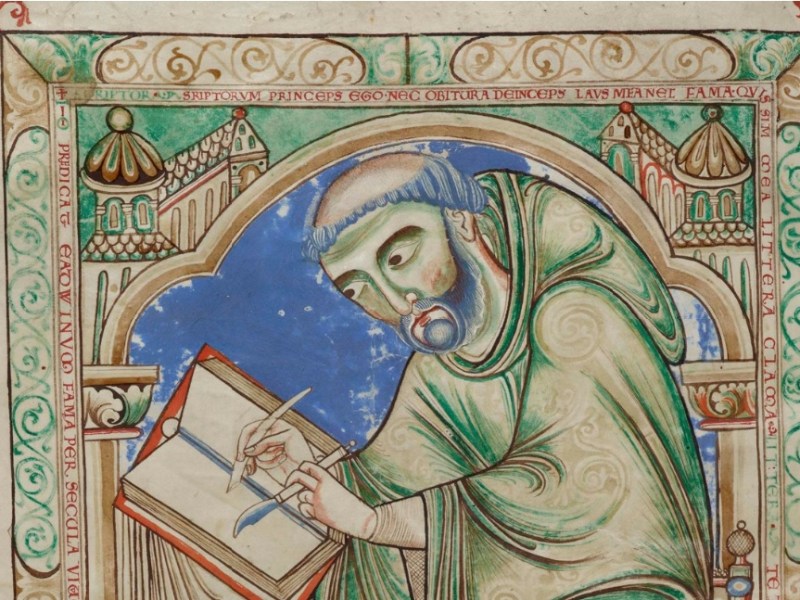 SCRIPTOR SRIPTORVM PRINCEPS EGO·NEC OBITURA DEINCEPS LAVS MEA NEC FAMA·QVIS
SIM MEA LITTERA CLAMA
TE
PREDICAT EADWINVM FAMA PER SECULA